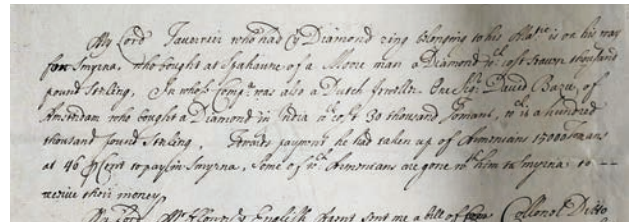 My Lord Taverneir who had yᵉ Diamond ring belonging to his Maᵗⁱᵉ is on his way
for Smyrna. who bought at Spahaune of a More man a Diamond wᶜʰ cost seaven thousand
pound Sterling, In whose Compᵃ was also a Dutch Jeweller. One Sigʳ David Bazu, of
Amsterdam who bought a Diamond in India wᶜʰ cost 30 thousand Tomans, wᶜʰ is a hundred
thousand pound Sterling, Towards payment he had taken up of Armenians 15000 Tomans
at 46 ⅌ Cent to pay in Smyrna, Some of wᶜʰ Armenians are gone wᵗʰ him to Smyrna to --
receive their money,
My Lord Mʳ English Agent sent me a bill of Collonel Ditto